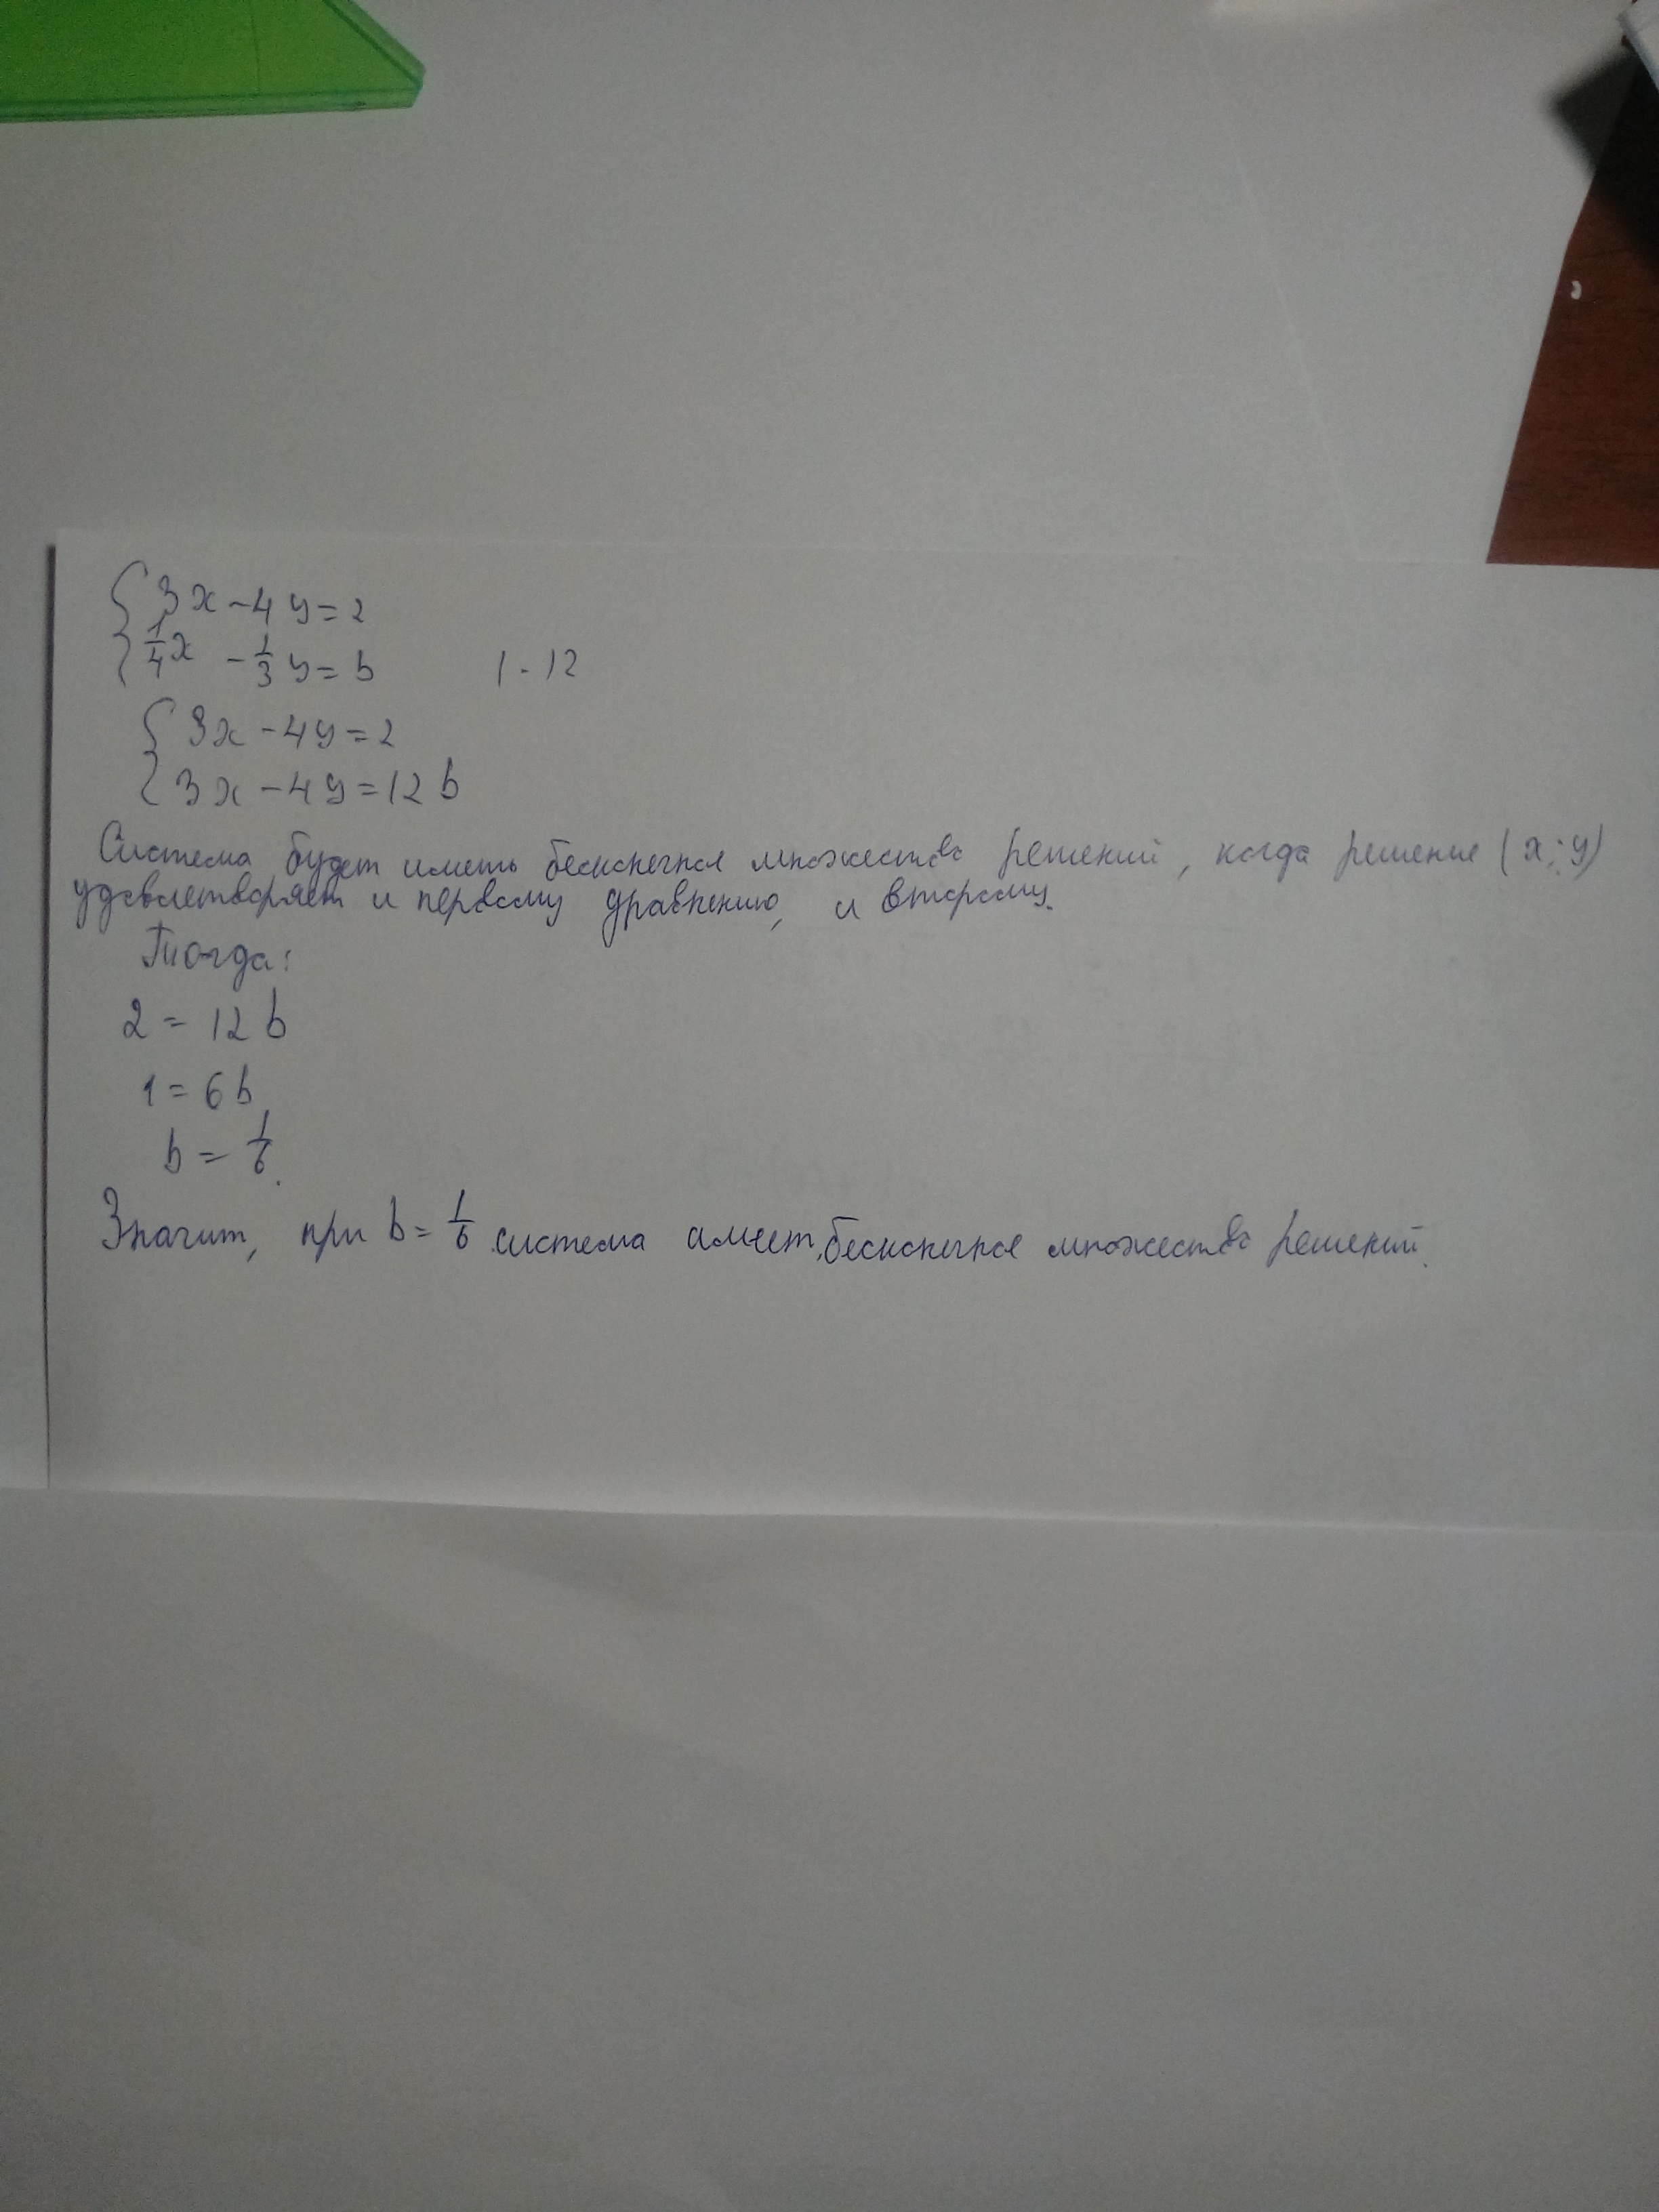 3x - 4y = 2
1/4 x - 1/3 y = b | · 12
3x - 4y = 2
3x - 4y = 12b
Система будет иметь бесконечное множество решений, когда решение (x; y)
удовлетворяет и первому уравнению, и второму.
Тогда:
2 = 12b
1 = 6b
b = 1/6.
Значит, при b = 1/6 система имеет бесконечное множество решений.